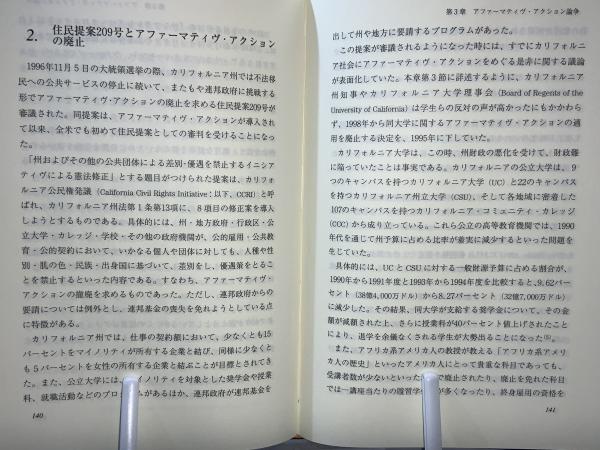 2. 住民提案209号とアファーマティヴ・アクション
の廃止
1996年11月5日の大統領選挙の際、カリフォルニア州では不法移
民への公共サービスの停止に続いて、またもや連邦政府に挑戦する
形でアファーマティヴ・アクションの廃止を求める住民提案209号が
審議された。同提案は、アファーマティヴ・アクションが導入され
て以来、全米でも初めて住民提案としての審判を受けることになっ
た。
「州およびその他の公共団体による差別・優遇を禁止するイニシア
ティヴによる憲法修正」とする題目がつけられた提案は、カリフォ
ルニア公民権発議（California Civil Rights Initiative：以下、CCRI）と呼
ばれ、カリフォルニア州法第1条第13項に、8項目の修正案を導入
しようとするものである。具体的には、州・地方政府・行政区・公
立大学・カレッジ・学校・その他の政府機関が、公的雇用・公共教
育・公的契約において、いかなる個人や団体に対しても、人種・性
別・肌の色・民族・出身国に基づいて、差別をし、優遇策をとるこ
とを禁止するといった内容である。すなわち、アファーマティヴ・
アクションの撤廃を求めるものであった。ただし、連邦政府からの
要請については例外とし、連邦基金の喪失を免れようとしている点
に特徴がある。
カリフォルニア州では、仕事の契約額において、少なくとも15
パーセントをマイノリティが所有する企業と結び、同様に少なくと
も5パーセントを女性の所有する企業と結ぶことが目標とされてき
た。また、公立大学には、マイノリティを対象とした奨学金や授業
料、就職活動などのプログラムがあるほか、連邦政府が連邦基金を
140
第3章 アファーマティヴ・アクション論争
出して州や地方に要請するプログラムがあった。
この提案が審議されるようになった時には、すでにカリフォルニ
ア社会にアファーマティヴ・アクションをめぐる是非に関する議論
が表面化していた。本章第3節に詳述するように、カリフォルニア
州知事やカリフォルニア大学理事会（Board of Regents of the
University of California）は学生らの反対の声が高かったにもかかわら
ず、1998年から同大学に関するアファーマティヴ・アクションの適
用を廃止する決定を、1995年に下していた。
カリフォルニア大学は、この時、州財政の悪化を受けて、財政難
に陥っていたことは事実である。カリフォルニアの公立大学は、9
つのキャンパスを持つカリフォルニア大学（UC）と22のキャンパス
を持つカリフォルニア州立大学（CSU）、そして各地域に密着した
107のキャンパスを持つカリフォルニア・コミュニティ・カレッジ
（CCC）から成り立っている。これら公立の高等教育機関では、1990
年代を通じて州予算に占める比率が着実に減少するといった問題を
生じていた。
具体的には、UCとCSUに対する一般財源予算に占める割合が、
1990年から1991年度と1993年から1994年度を比較すると、9.62パー
セント（38億4,000万ドル）から8.27パーセント（32億7,000万ドル）
に減少した。その結果、同大学が支給する奨学金について、その金
額が減額された上、さらに授業料が40パーセント値上げされたこと
により、退学を余儀なくされる学生が大勢出ることになった
また、アフリカ系アメリカ人の教授が教える「アフリカ系アメリ
カ人の歴史」といったアメリカ人にとって貴重な科目であっても、
受講者数が少ないといった で廃止されたり、廃止を免れた科目
では一講座当たりの履修学 が多くなったり、終身雇用の資格を
141